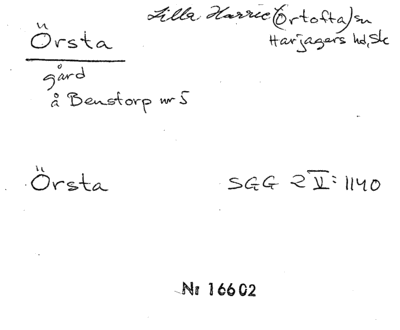 Lilla Harrie (Örtofta) sn
Örsta
Harjagers hd, Sk
gård
å Benstorp nr 5
Örsta
SGG 2 V: 1140
Nr 16602